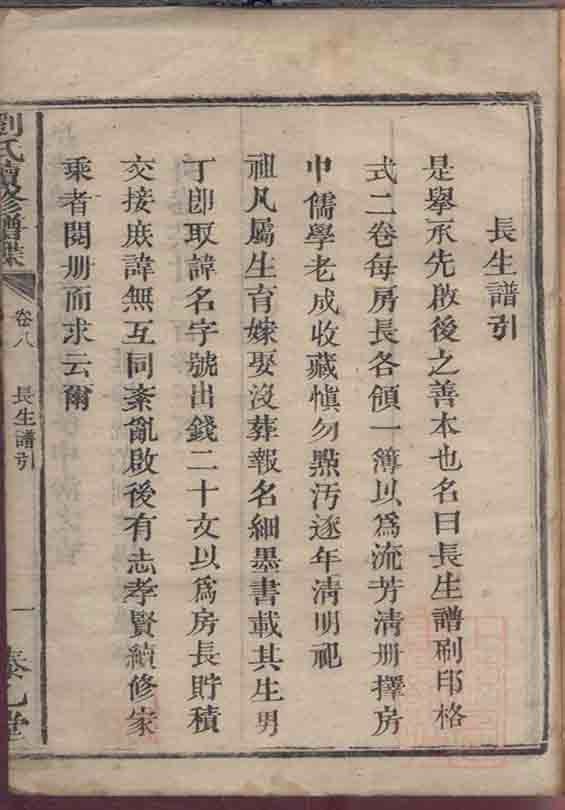 長生譜引
是舉承先啟後之善本也名曰長生譜刷印格
式二卷每房長各領一簿以為流芳清册擇房
中儒學老成收藏慎勿㸃汚逐年清明祀
祖凡屬生育嫁娶沒葬報名細墨書載其生男
丁卽取諱名字號出錢二十文以為房長貯積
交接庻諱無互同紊亂啟後有志孝賢續修家
乘者閱册而求云爾
劉氏續修譜牒
卷八
長生譜引
一